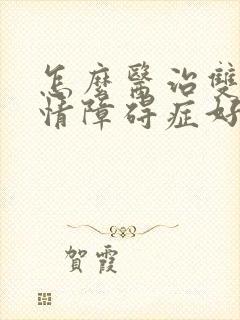 怎麼醫治雙
情障碍症好
賀霞